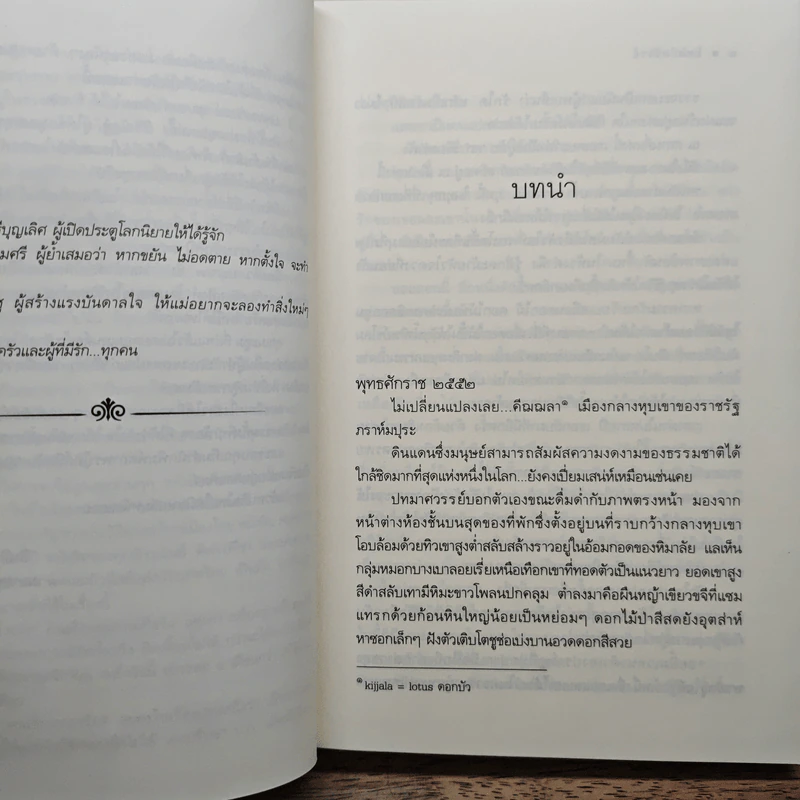 บุญเลิศ ผู้เปิดประตูโลกนิยายให้ได้รู้จัก
มศรี ผู้ย้ำเสมอว่า หากขยัน ไม่อดตาย หากตั้งใจ จะทำ
ผู้สร้างแรงบันดาลใจ ให้แม่อยากจะลองทำสิ่งใหม่ๆ
ครัวและผู้ที่มีรัก...ทุกคน
บทนำ
พุทธศักราช ๒๕๕๒
ไม่เปลี่ยนแปลงเลย...คีฌฌลา๑ เมืองกลางหุบเขาของราชรัฐ
ภราห์มปุระ
ดินแดนซึ่งมนุษย์สามารถสัมผัสความงดงามของธรรมชาติได้
ใกล้ชิดมากที่สุดแห่งหนึ่งในโลก...ยังคงเปี่ยมเสน่ห์เหมือนเช่นเคย
ปทมาศวรรย์บอกตัวเองขณะดื่มด่ำกับภาพตรงหน้า มองจาก
หน้าต่างห้องชั้นบนสุดของที่พักซึ่งตั้งอยู่บนที่ราบกว้างกลางหุบเขา
โอบล้อมด้วยทิวเขาสูงต่ำสลับสล้างราวอยู่ในอ้อมกอดของหิมาลัย แลเห็น
กลุ่มหมอกบางเบาลอยเรี่ยเหนือเทือกเขาที่ทอดตัวเป็นแนวยาว ยอดเขาสูง
สีดำสลับเทามีหิมะขาวโพลนปกคลุม ต่ำลงมาคือผืนหญ้าเขียวขจีที่แซม
แทรกด้วยก้อนหินใหญ่น้อยเป็นหย่อมๆ ดอกไม้ป่าสีสดยังอุตส่าห์
หาซอกเล็กๆ ฝังตัวเติบโตชูช่อเบ่งบานอวดดอกสีสวย
๑ kijjala = lotus ดอกบัว